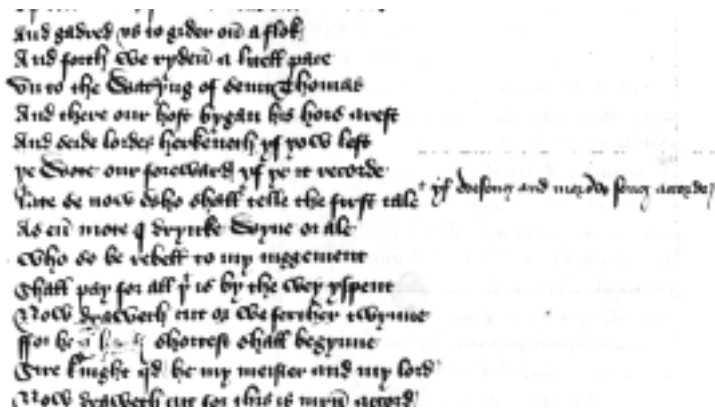 And gadred vs to gider on a flok
And forth we ryden a litell pace
Vn to the Watryng of seint Thomas
And there our host bygan his hors arest
And seide lordes herkeneth yf yow lest
ye Wote our foreward yf ye it recorde
yf evesong and morwe song acorde
late se now who shall telle the furst tale
As eu more I drynke Wyne or ale
Who so be rebell to my iugement
Shall pay for all þt is by the wey yspent
Now draweth cut or we ferther twynne
ffor he shortest shall begynne
Sire knyght qd he my meister and my lord
Now draweth cut for this is myn acord